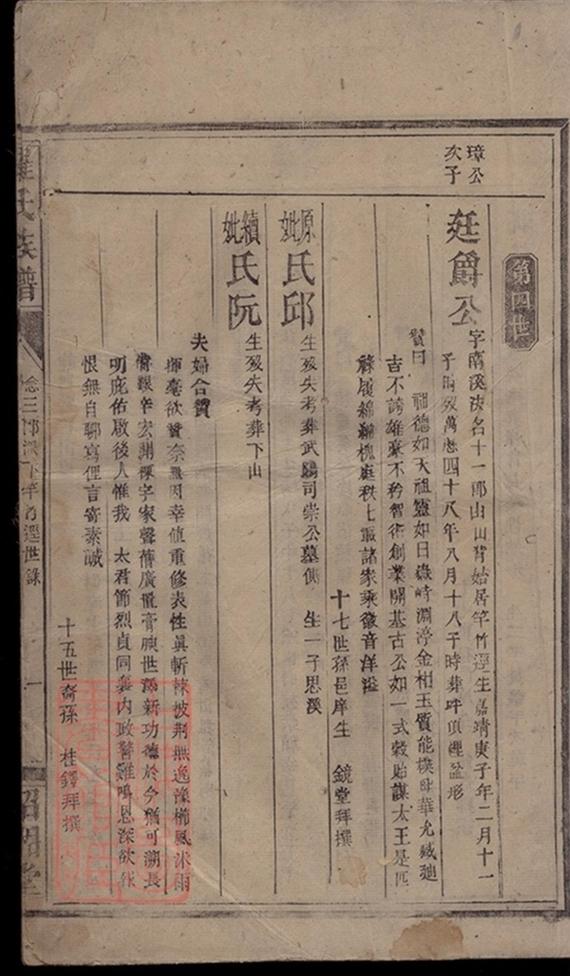 第四世
璋公
次子
廷爵公
字南溪法名十一郎由山背始居竿竹逕生嘉靖庚子年二月十一
子時歿萬曆四十八年八月十八子時葬坪頂裡盆形
贊曰 祖德如天祖靈如日嶽峙淵渟金相玉質能樸毋華允臧迪
吉不誇雄豪不矜智術創業開基古公如一式穀貽謀太王是匹
祿履綿綿槐庭秩七重諸家乘徽音洋溢
十七世孫邑庠生 鏡堂拜撰
原妣
氏邱
生歿失考葬武陽司崇公墓側 生一子思溪
續妣
氏阮
生歿失考葬下山
夫婦合贊
揮毫欲贊奈無因幸值重修表性真斬棘披荆無逸豫櫛風沐雨
艱辛宏開棟宇家聲傳廣置膏腴世澤新功德於今猶可溯長
明庇佑啟後人惟我 太君節烈貞同襄內政警雞鳴恩深欲報
恨無自聊寫俚言寄素誠
十五世裔孫 桂鐸拜撰
氏族譜
三郎
世錄
一
堂